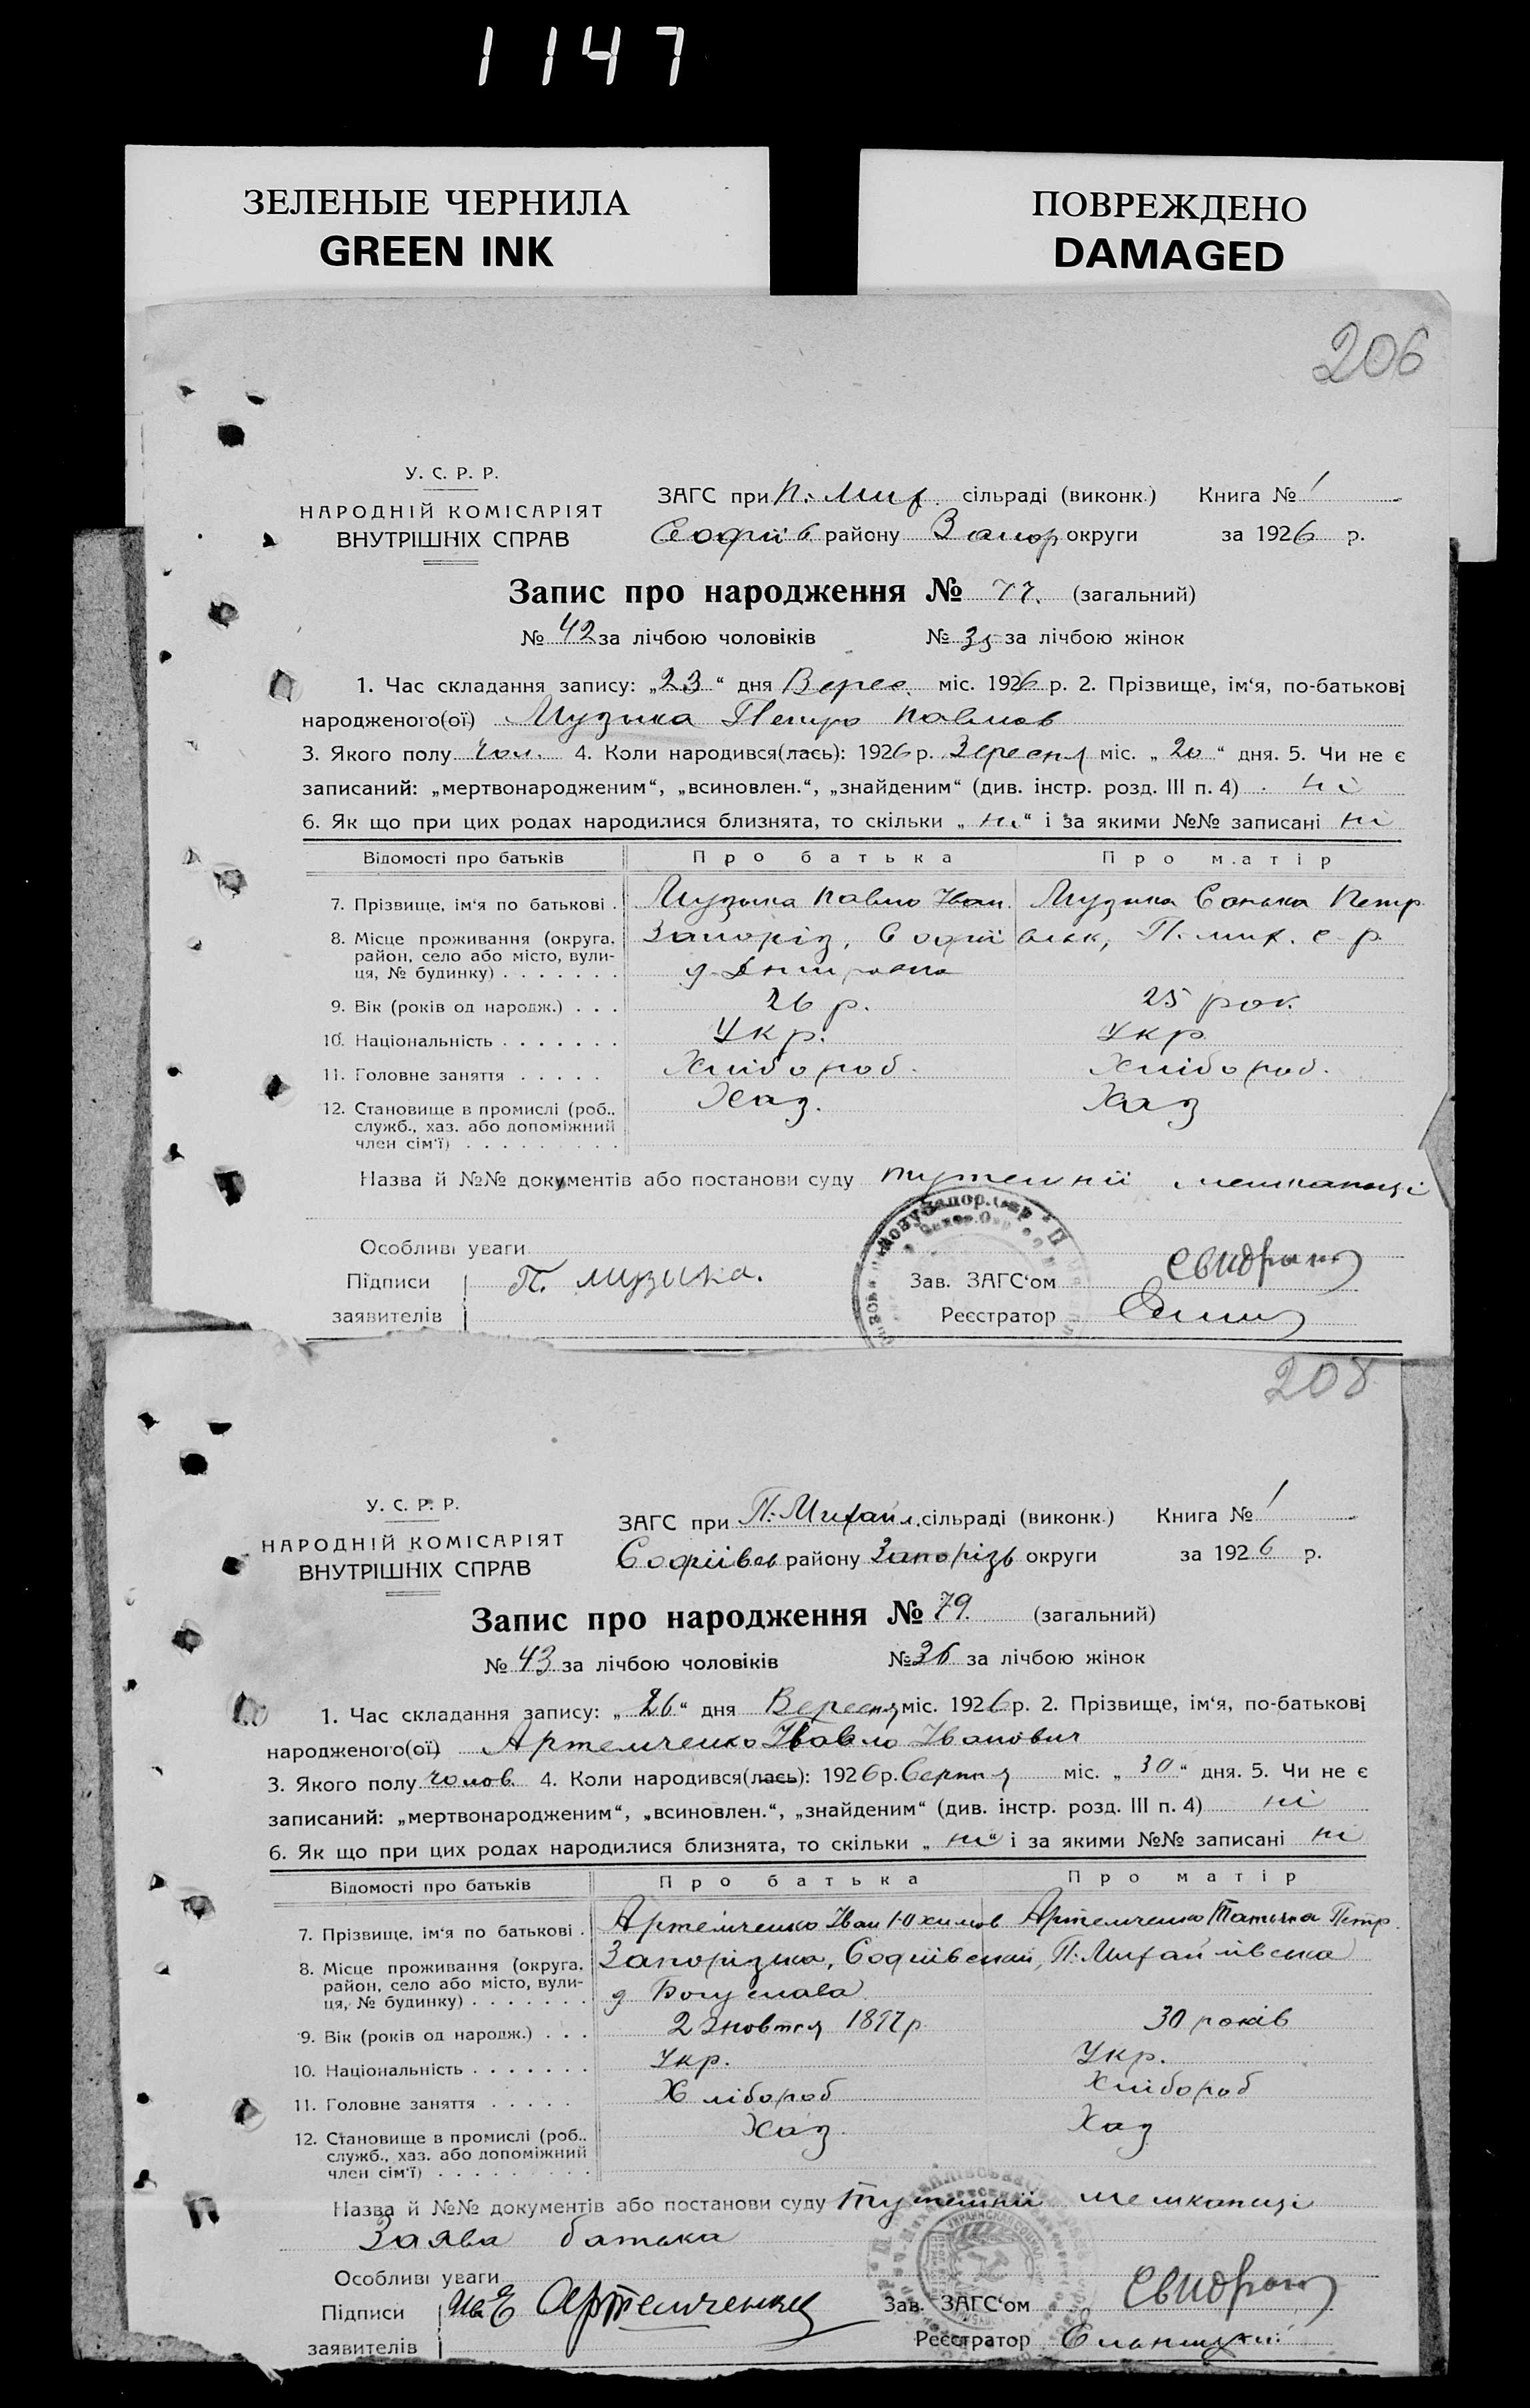 1147
ЗЕЛЕНЫЕ ЧЕРНИЛА
GREEN INK
ПОВРЕЖДЕНО
DAMAGED
206
У. С. Р. Р.
НАРОДНІЙ КОМІСАРІЯТ
ВНУТРІШНІХ СПРАВ
ЗАГС при П. Мих. сільраді (виконк.) Книга № 1
Софіїв. району Запор округи за 1926 р.
Запис про народження № 77. (загальний)
№ 42 за лічбою чоловіків № 35 за лічбою жінок
1. Час складання запису: „23“ дня Верес. міс. 1926 р. 2. Прізвище, ім‘я, по-батькові
народженого(ої) Музика Петро Павлов
3. Якого полу чол. 4. Коли народився(лась): 1926 р. Вересня міс. „20“ дня. 5. Чи не є
записаний: „мертвонародженим“, „всиновлен.“, „знайденим“ (див. інстр. розд. III п. 4) ні
6. Як що при цих родах народилися близнята, то скільки „ні“ і за якими №№ записані ні
Відомості про батьків Про батька Про матір
7. Прізвище, ім‘я по батькові . Музика Павло Іван. Музика Санька Петр.
8. Місце проживання (округа, Запоріз, Софіївськ, П. мих. с-р
район, село або місто, вули-
ця, № будинку) . . . . . . . д.
9. Вік (років од народж.) . . . 26 р. 25 рок.
10. Національність . . . . . . . Укр. Укр
11. Головне заняття . . . . . Хлібороб. Хлібороб.
12. Становище в промислі (роб., Хаз. Хаз
служб., хаз. або допоміжний
член сім‘ї) . . . . . . . . .
Назва й №№ документів або постанови суду тутешнії мешканці
Особливі уваги
Підписи П. музика. Зав. ЗАГС‘ом
заявителів Реєстратор
208
У. С. Р. Р.
НАРОДНІЙ КОМІСАРІЯТ
ВНУТРІШНІХ СПРАВ
ЗАГС при П. Михайл. сільраді (виконк.) Книга № 1
Софіївсь району Запорізь округи за 1926 р.
Запис про народження № 79. (загальний)
№ 43 за лічбою чоловіків № 36 за лічбою жінок
1. Час складання запису: „26“ дня Вересня міс. 1926 р. 2. Прізвище, ім‘я, по-батькові
народженого(ої) Артемченко Павло Іванович
3. Якого полу чолов. 4. Коли народився(лась): 1926 р. Серпня міс. „30“ дня. 5. Чи не є
записаний: „мертвонародженим“, „всиновлен.“, „знайденим“ (див. інстр. розд. III п. 4) ні
6. Як що при цих родах народилися близнята, то скільки „ні“ і за якими №№ записані ні
Відомості про батьків Про батька Про матір
7. Прізвище, ім‘я по батькові . Артемченко Іван Юхимов Артемченко Татьяна Петр.
8. Місце проживання (округа, Запорізька, Софіївський, П. Михайлівська
район, село або місто, вули-
ця, № будинку) . . . . . . . д Богуслава
9. Вік (років од народж.) . . . 2 жовтня 1897 р. 30 років
10. Національність . . . . . . . Укр. Укр.
11. Головне заняття . . . . . Хлібороб Хлібороб
12. Становище в промислі (роб., Хаз. Хаз
служб., хаз. або допоміжний
член сім‘ї) . . . . . . . . .
Назва й №№ документів або постанови суду тутешнії мешканці
Заява батька
Особливі уваги
Підписи Артемченко Зав. ЗАГС‘ом
заявителів Реєстратор